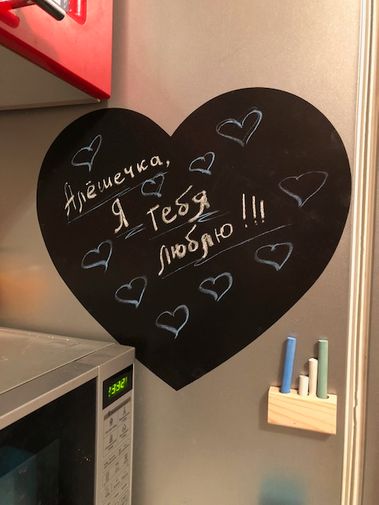 Алёшечка,
Я Тебя
люблю!!!